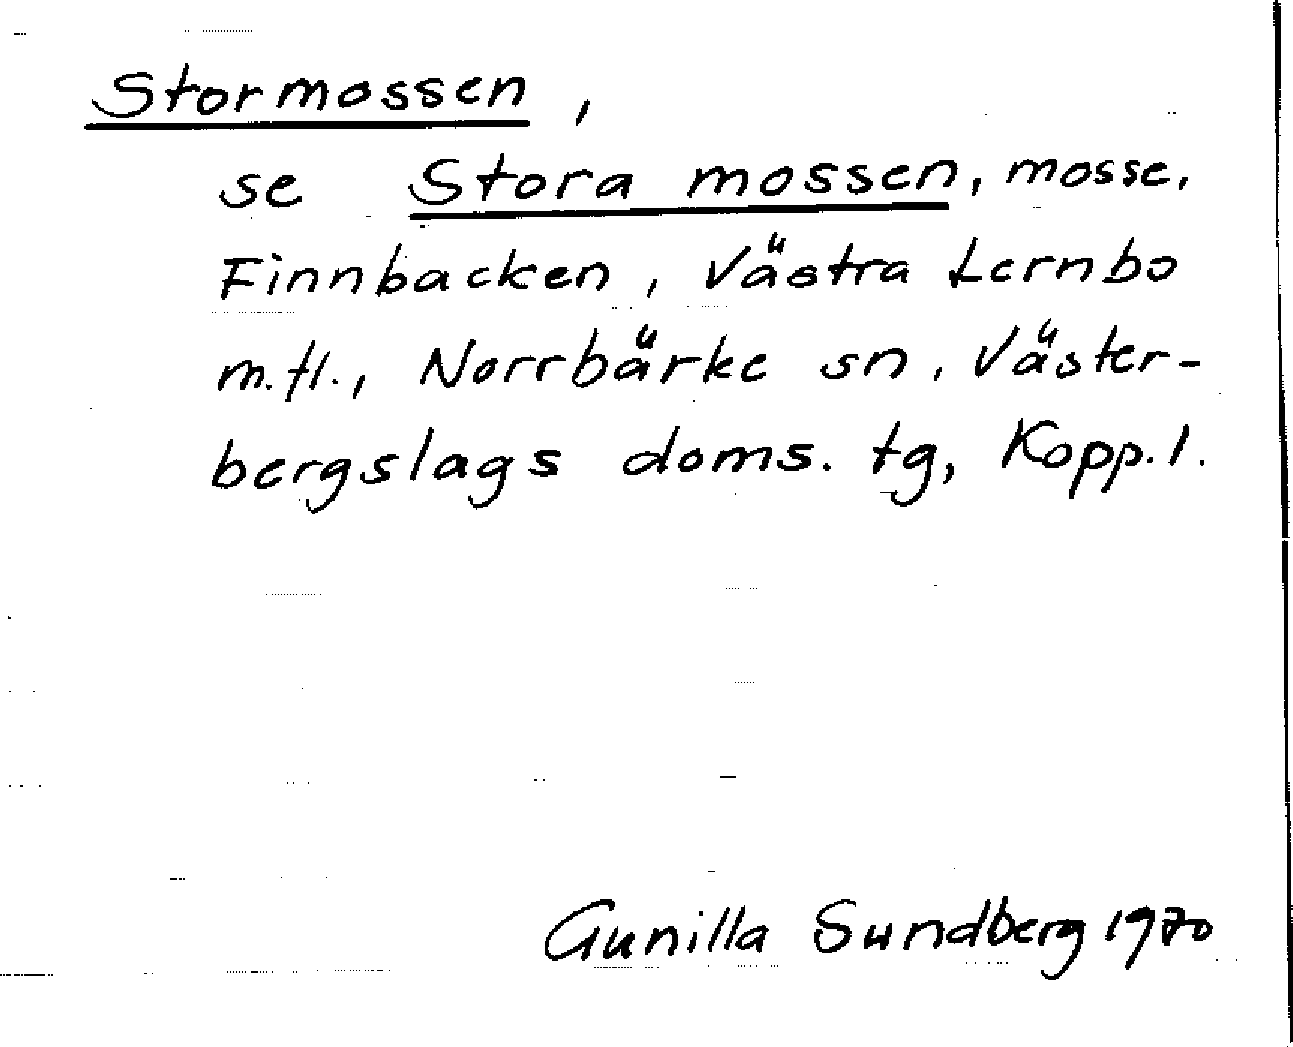 Stormossen,
se Stora mossen, mosse,
Finnbacken, Västra Lernbo
m.fl., Norrbärke sn, Väster-
bergslags doms. tg, Kopp. l.
Gunilla Sundberg 1970